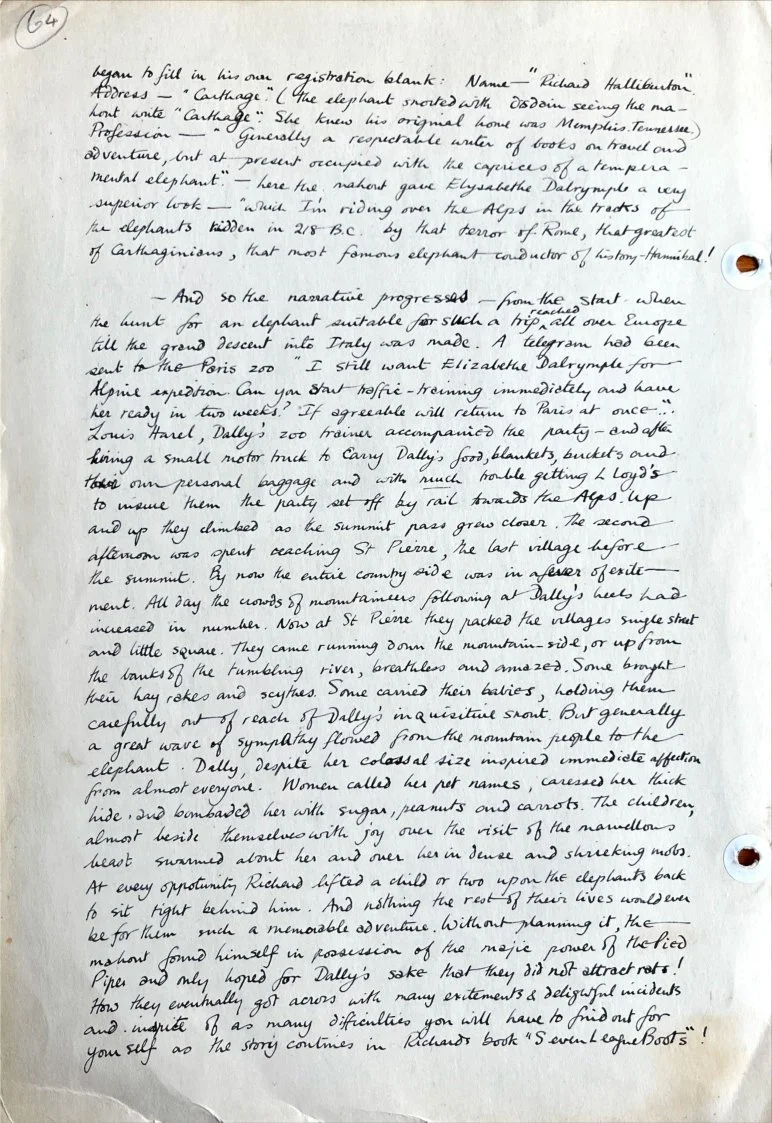 64
began to fill in his own registration blank: Name — "Richard Halliburton".
Address — "Carthage". (The elephant snorted with disdain seeing the ma-
hout write "Carthage". She knew his original home was Memphis. Tennessee.)
Profession — "Generally a respectable writer of books on travel and
adventure, but at present occupied with the caprices of a tempera-
mental elephant". — here the mahout gave Elysabethe Dalrymple a very
superior look — "which I'm riding over the Alps in the tracks of
the elephants ridden in 218 B.C. by that terror of Rome, that greatest
of Carthaginians, that most famous elephant conductor of history - Hannibal!
— And so the narrative progresses — from the start when
the hunt for an elephant suitable for such a trip reached all over Europe
till the grand descent into Italy was made. A telegram had been
sent to the Paris zoo "I still want Elizabethe Dalrymple for
Alpine expedition. Can you start traffic-training immediately and have
her ready in two weeks? If agreeable will return to Paris at once..".
Louis Harel, Dally's zoo trainer accompanied the party — and after
hiring a small motor truck to carry Dally's food, blankets, buckets and
their own personal baggage and with much trouble getting Lloyd's
to insure them the party set off by rail towards the Alps. Up
and up they climbed as the summit pass grew closer. The second
afternoon was spent reaching St Pierre, the last village before
the summit. By now the entire country side was in a fever of exite-
ment. All day the crowds of mountaineers following at Dally's heels had
increased in number. Now at St Pierre they packed the villages single street
and little square. They came running down the mountain-side, or up from
the banks of the tumbling river, breathless and amazed. Some brought
their hay rakes and scythes. Some carried their babies, holding them
carefully out of reach of Dally's inquisitive snout. But generally
a great wave of sympathy flowed from the mountain people to the
elephant. Dally, despite her colossal size inspired immediate affection
from almost everyone. Women called her pet names, caressed her thick
hide, and bombaded her with sugar, peanuts and carrots. The children,
almost beside themselves with joy over the visit of the marvellous
beast swarmed about her and over her in dense and shrieking mobs.
At every oppotunity Richard lifted a child or two upon the elephants back
to sit tight behind him. And nothing the rest of their lives would ever
be for them such a memorable adventure. Without planning it, the
mahout found himself in possession of the majic power of the Pied
Piper and only hoped for Dally's sake that they did not attract rats!
How they eventually got across with many exitements & delightful incidents
and inspite of as many difficulties you will have to find out for
yourself as the story contines in Richards book "Seven League Boots"!